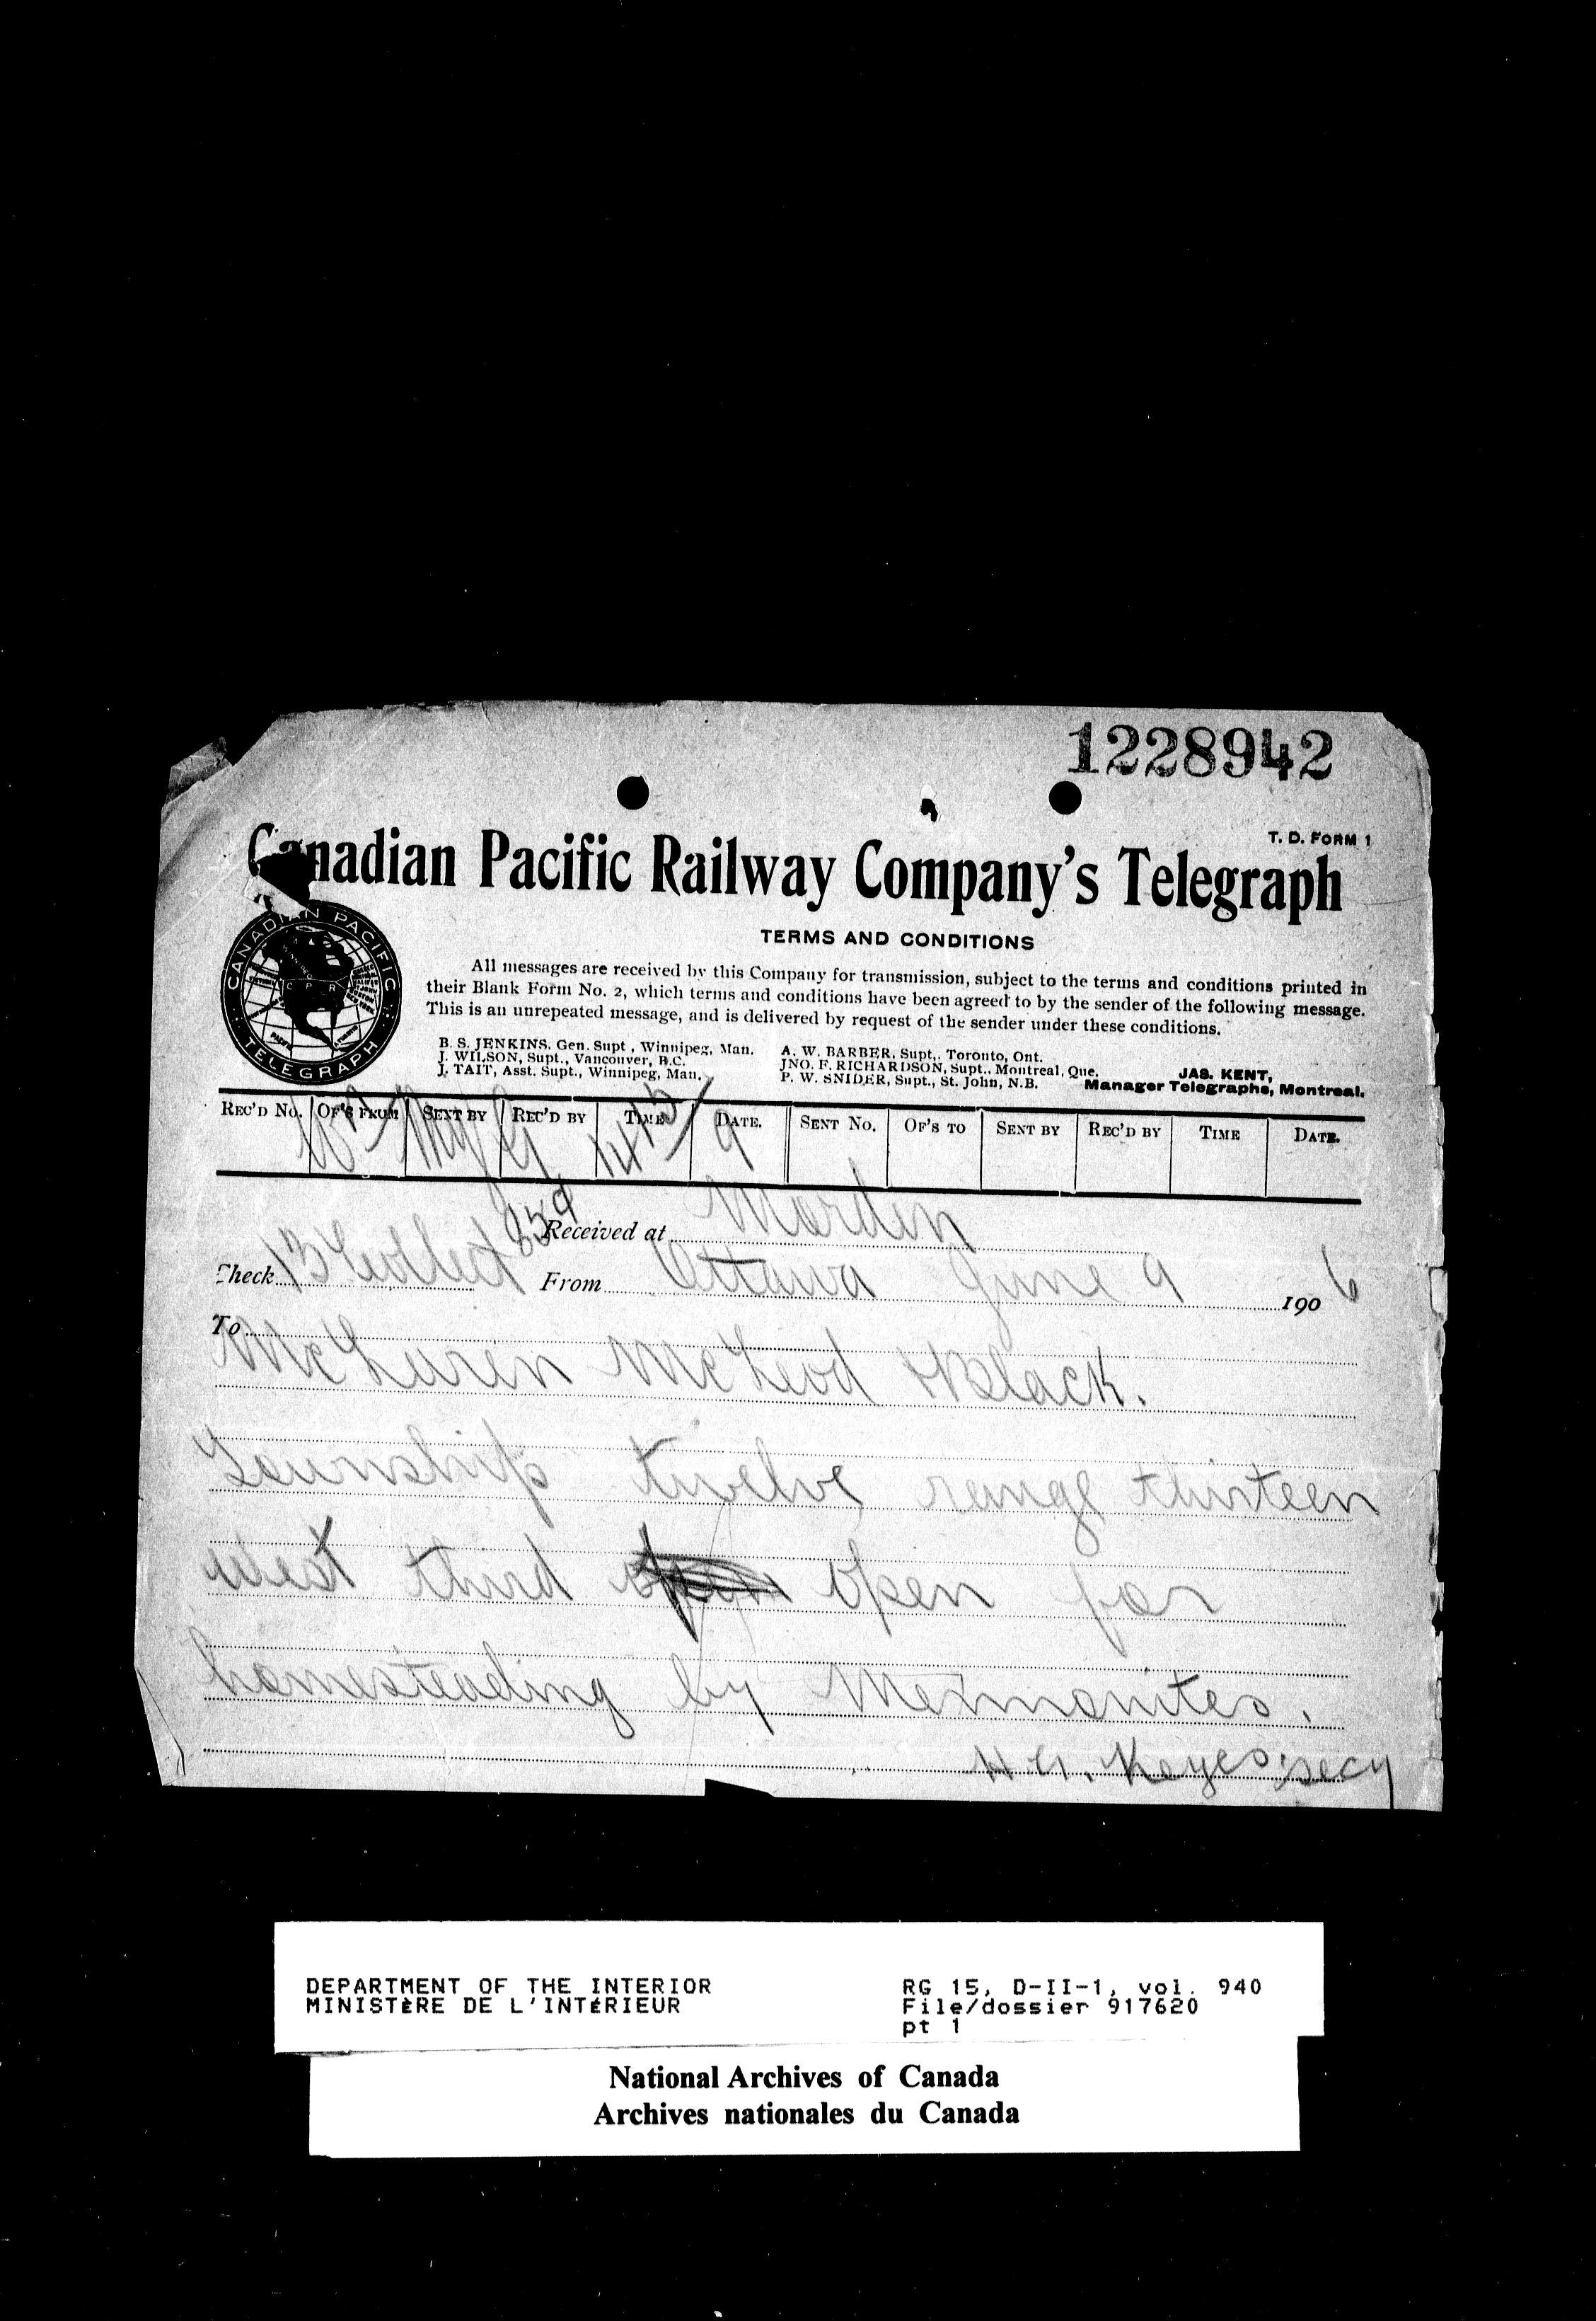 1228942
T. D. FORM 1
Canadian Pacific Railway Company's Telegraph
CANADIAN PACIFIC
TELEGRAPH
C P R
TERMS AND CONDITIONS
All messages are received by this Company for transmission, subject to the terms and conditions printed in
their Blank Form No. 2, which terms and conditions have been agreed to by the sender of the following message.
This is an unrepeated message, and is delivered by request of the sender under these conditions.
B. S. JENKINS, Gen. Supt., Winnipeg, Man. A. W. BARBER, Supt., Toronto, Ont.
J. WILSON, Supt., Vancouver, B.C. JNO. F. RICHARDSON, Supt., Montreal, Que. JAS. KENT,
J. TAIT, Asst. Supt., Winnipeg, Man. P. W. SNIDER, Supt., St. John, N.B. Manager Telegraphs, Montreal.
REC'D NO. OF'S FROM SENT BY REC'D BY TIME DATE. SENT NO. OF'S TO SENT BY REC'D BY TIME DATE.
9
Received at Morden
Check 13 Collect From Ottawa June 9 1906
To
McLaren McLeod & Black.
Township twelve range thirteen
west third open for
homesteading by Mennonites.
H G. Keyes, secy
DEPARTMENT OF THE INTERIOR RG 15, D-II-1, vol. 940
MINISTÈRE DE L'INTÉRIEUR File/dossier 917620
pt 1
National Archives of Canada
Archives nationales du Canada